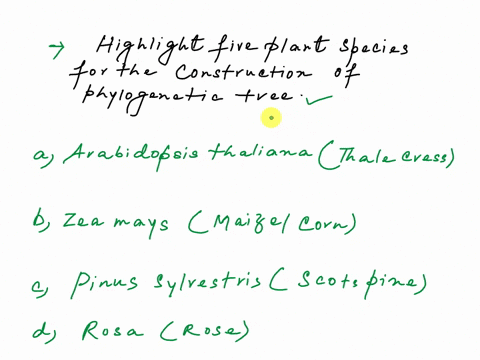 → Highlight five plant species
for the construction of
phylogenetic tree. ✓
a, Arabidopsis thaliana (Thale cress)
b, Zea mays (Maize/corn)
c, Pinus sylvestris (Scots pine)
d, Rosa (Rose)